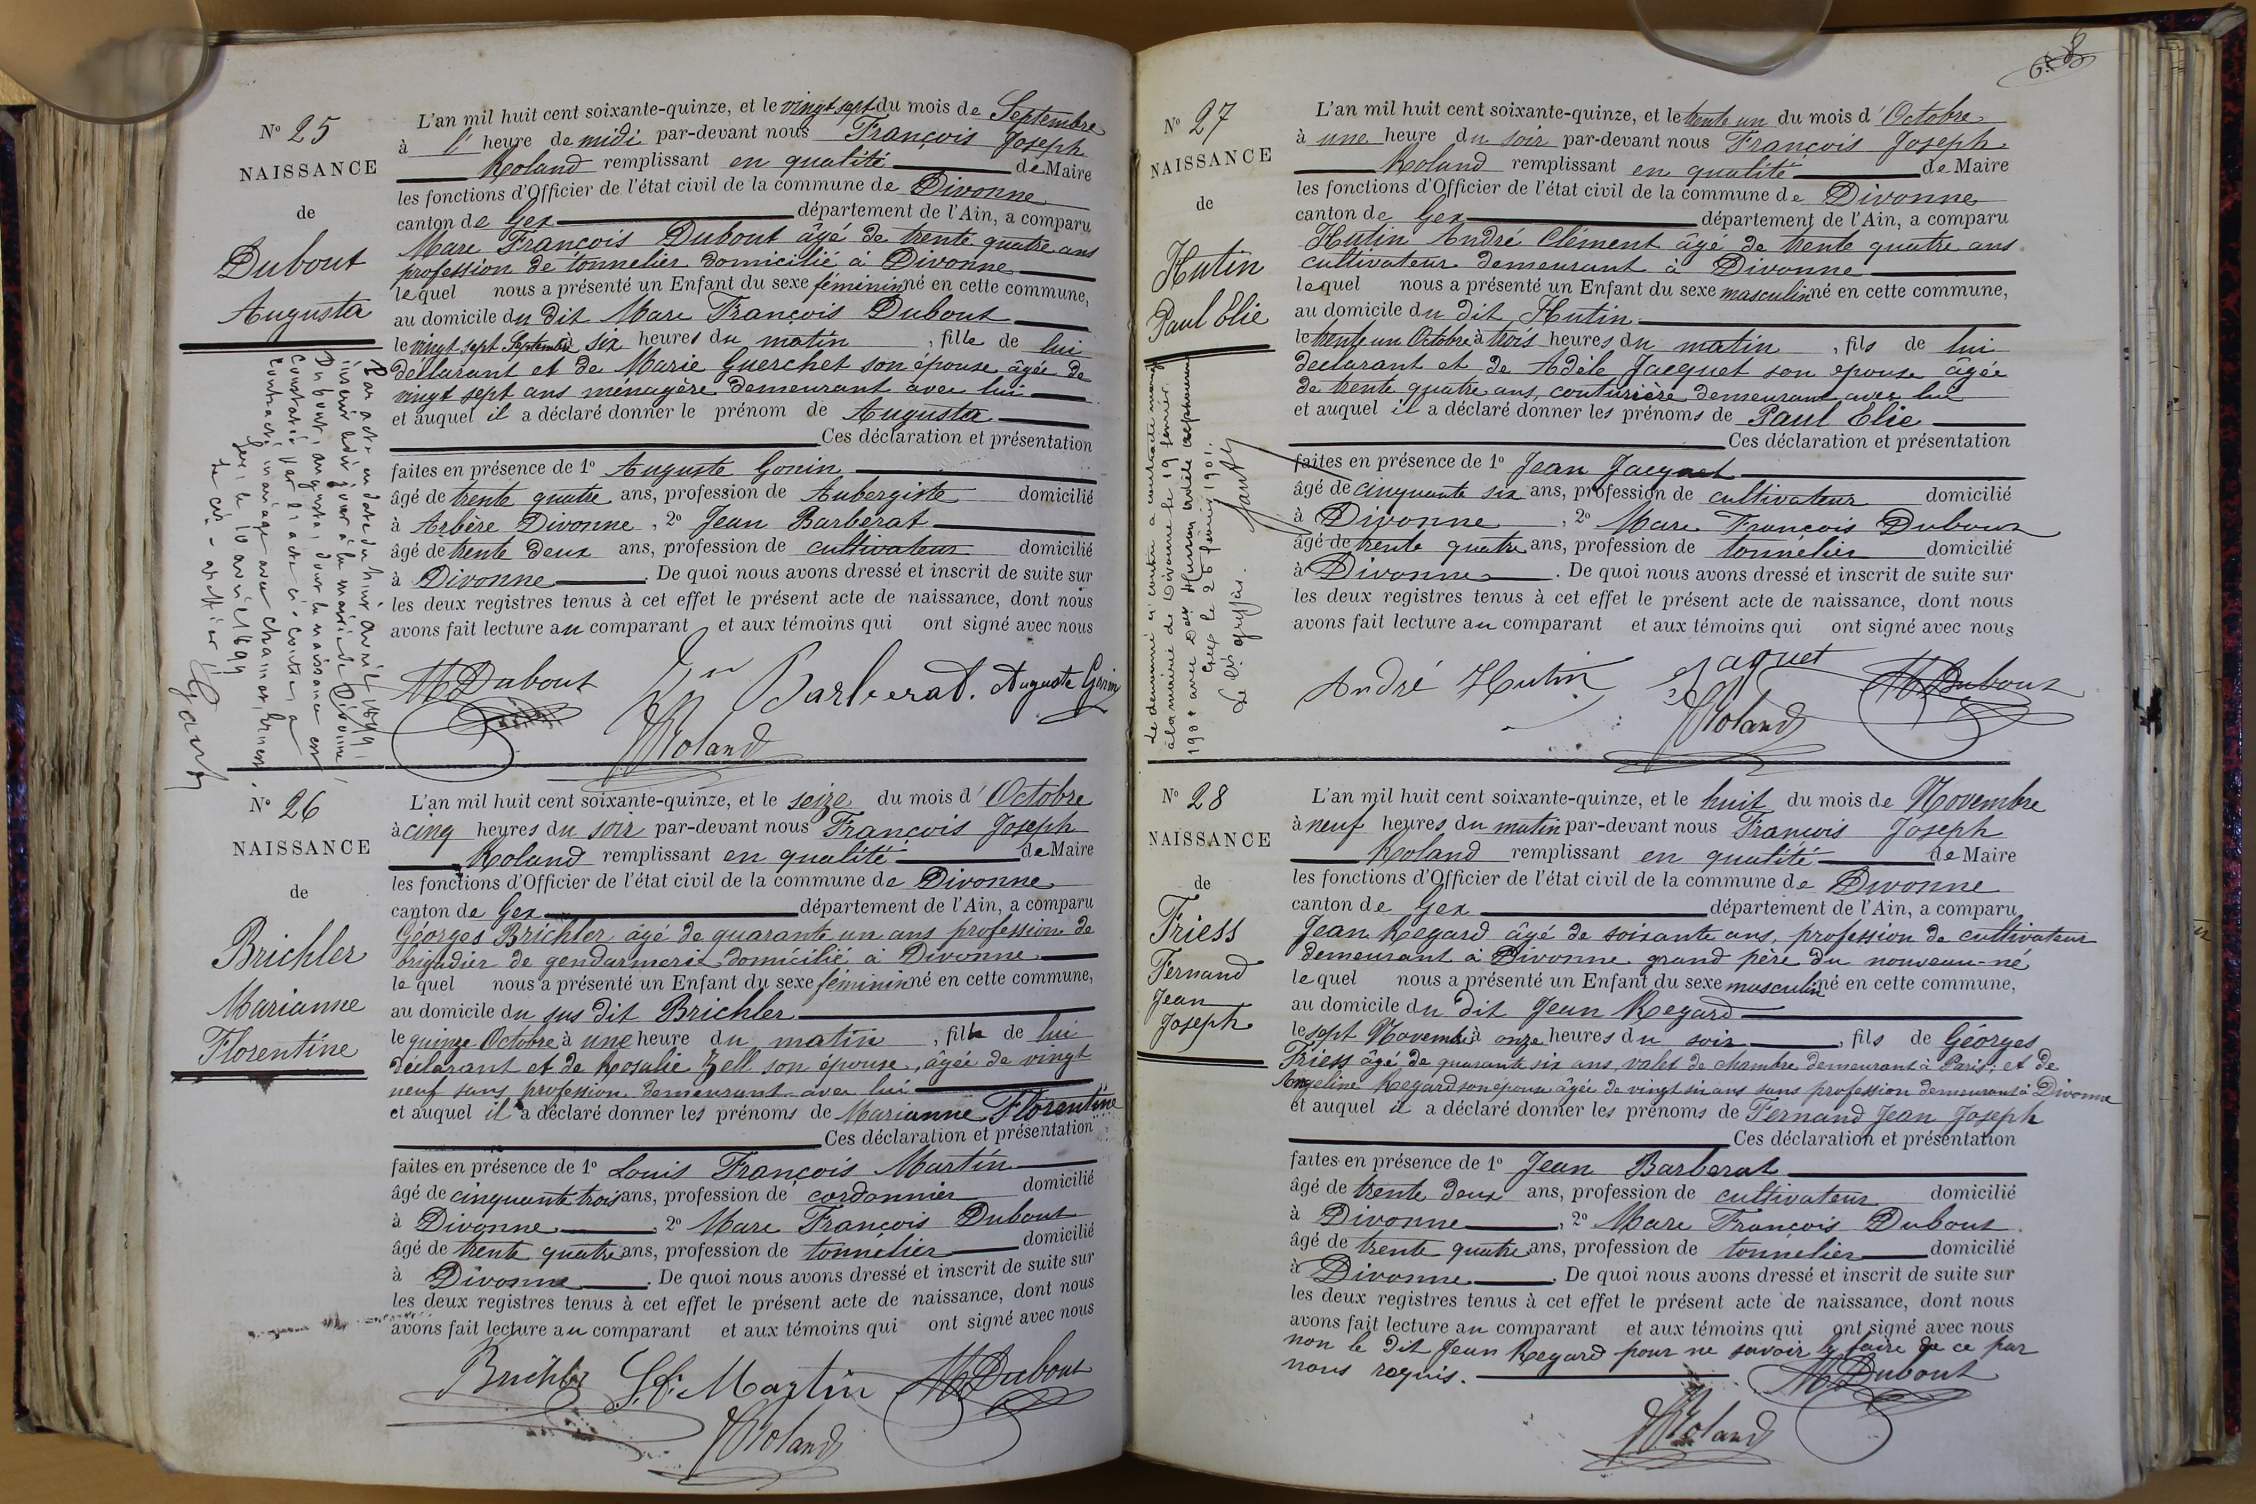 N° 25
NAISSANCE
de
Dubout
Augusta
L'an mil huit cent soixante-quinze, et le vingt sept du mois de Septembre
à l' heure de midi par-devant nous François Joseph
Roland remplissant en qualité de Maire
les fonctions d'Officier de l'état civil de la commune de Divonne
canton de Gex département de l'Ain, a comparu
Marc François Dubout âgé de trente quatre ans
profession de tonnelier domicilié à Divonne
lequel nous a présenté un Enfant du sexe féminin né en cette commune,
au domicile du dit Marc François Dubout
le vingt sept Septembre à six heures du matin , fille de lui
déclarant et de Marie Guerchet son épouse âgée de
vingt sept ans ménagère demeurant avec lui
et auquel il a déclaré donner le prénom de Augusta
Ces déclaration et présentation
faites en présence de 1° Auguste Gonin
âgé de trente quatre ans, profession de Aubergiste domicilié
à Arbère Divonne , 2° Jean Barberat
âgé de trente deux ans, profession de cultivateur domicilié
à Divonne . De quoi nous avons dressé et inscrit de suite sur
les deux registres tenus à cet effet le présent acte de naissance, dont nous
avons fait lecture au comparant et aux témoins qui ont signé avec nous
M Dubout Jn Barberat. Auguste Gonin
Roland
Par acte en date du huit avril 1899
inscrit ledit jour à la mairie de Divonne,
Dubout, augusta, dont la naissance est
constatée par l'acte ci-contre, a
contracté mariage avec Chamot, Ernest.
Gex, le 10 avril 1899
Le cis-greffier
N° 26
NAISSANCE
de
Brichler
Marianne
Florentine
L'an mil huit cent soixante-quinze, et le seize du mois d' Octobre
à cinq heures du soir par-devant nous François Joseph
Roland remplissant en qualité de Maire
les fonctions d'Officier de l'état civil de la commune de Divonne
canton de Gex département de l'Ain, a comparu
Géorges Brichler âgé de quarante un ans profession de
brigadier de gendarmerie domicilié à Divonne
le quel nous a présenté un Enfant du sexe féminin né en cette commune,
au domicile du sus dit Brichler
le quinze Octobre à une heure du matin , fille de lui
déclarant et de Rosalie Zell son épouse, âgée de vingt
neuf sans profession demeurant avec lui
et auquel il a déclaré donner les prénoms de Marianne Florentine
Ces déclaration et présentation
faites en présence de 1° Louis François Martin
âgé de cinquante trois ans, profession de cordonnier domicilié
à Divonne 2° Marc François Dubout
âgé de trente quatre ans, profession de tonnelier domicilié
à Divonne . De quoi nous avons dressé et inscrit de suite sur
les deux registres tenus à cet effet le présent acte de naissance, dont nous
avons fait lecture au comparant et aux témoins qui ont signé avec nous
Brichler L. F. Martin M Dubout
Roland
N° 27
NAISSANCE
de
Hutin
Paul Elie
L'an mil huit cent soixante-quinze, et le trente un du mois d' Octobre
à une heure du soir par-devant nous François Joseph
Roland remplissant en qualité de Maire
les fonctions d'Officier de l'état civil de la commune de Divonne
canton de Gex département de l'Ain, a comparu
Hutin André Clément âgé de trente quatre ans
cultivateur demeurant à Divonne
lequel nous a présenté un Enfant du sexe masculin né en cette commune,
au domicile du dit Hutin
le trente un Octobre à trois heures du matin , fils de lui
déclarant et de Adèle Jacquet son épouse âgée
de trente quatre ans, couturière demeurant avec lui
et auquel il a déclaré donner les prénoms de Paul Elie
Ces déclaration et présentation
faites en présence de 1° Jean Jacquet
âgé de cinquante six ans, profession de cultivateur domicilié
à Divonne , 2° Marc François Dubout
âgé de trente quatre ans, profession de tonnelier domicilié
à Divonne . De quoi nous avons dressé et inscrit de suite sur
les deux registres tenus à cet effet le présent acte de naissance, dont nous
avons fait lecture au comparant et aux témoins qui ont signé avec nous
André Hutin Jaquet M Dubout
Roland
Le dénommé ci contre a contracté mariage
à la mairie de Divonne le 19 février
1901 avec
Gex le 26 février 1901.
Le cis greffier.
N° 28
NAISSANCE
de
Friess
Fernand
Jean
Joseph
L'an mil huit cent soixante-quinze, et le huit du mois de Novembre
à neuf heures du matin par-devant nous François Joseph
Roland remplissant en qualité de Maire
les fonctions d'Officier de l'état civil de la commune de Divonne
canton de Gex département de l'Ain, a comparu
Jean Regard âgé de soixante ans, profession de cultivateur
demeurant à Divonne grand père du nouveau-né
le quel nous a présenté un Enfant du sexe masculin né en cette commune,
au domicile du dit Jean Regard
le sept Novembre à onze heures du soir , fils de Géorges
Friess âgé de quarante six ans, valet de chambre demeurant à Paris, et de
Angeline Regard son épouse âgée de vingt six ans sans profession demeurant à Divonne
et auquel il a déclaré donner les prénoms de Fernand Jean Joseph
Ces déclaration et présentation
faites en présence de 1° Jean Barberat
âgé de trente deux ans, profession de cultivateur domicilié
à Divonne , 2° Marc François Dubout
âgé de trente quatre ans, profession de tonnelier domicilié
à Divonne . De quoi nous avons dressé et inscrit de suite sur
les deux registres tenus à cet effet le présent acte de naissance, dont nous
avons fait lecture au comparant et aux témoins qui ont signé avec nous
non le dit Jean Regard pour ne savoir le faire de ce par
nous requis.
M Dubout
Roland